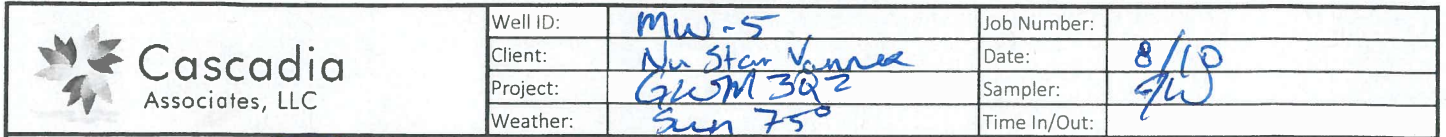 Cascadia
Associates, LLC
Well ID: MW-5 Job Number:
Client: Nu Star Date: 8/10
Project: GWM 3Q2 Sampler:
Weather: Sun 75° Time In/Out: